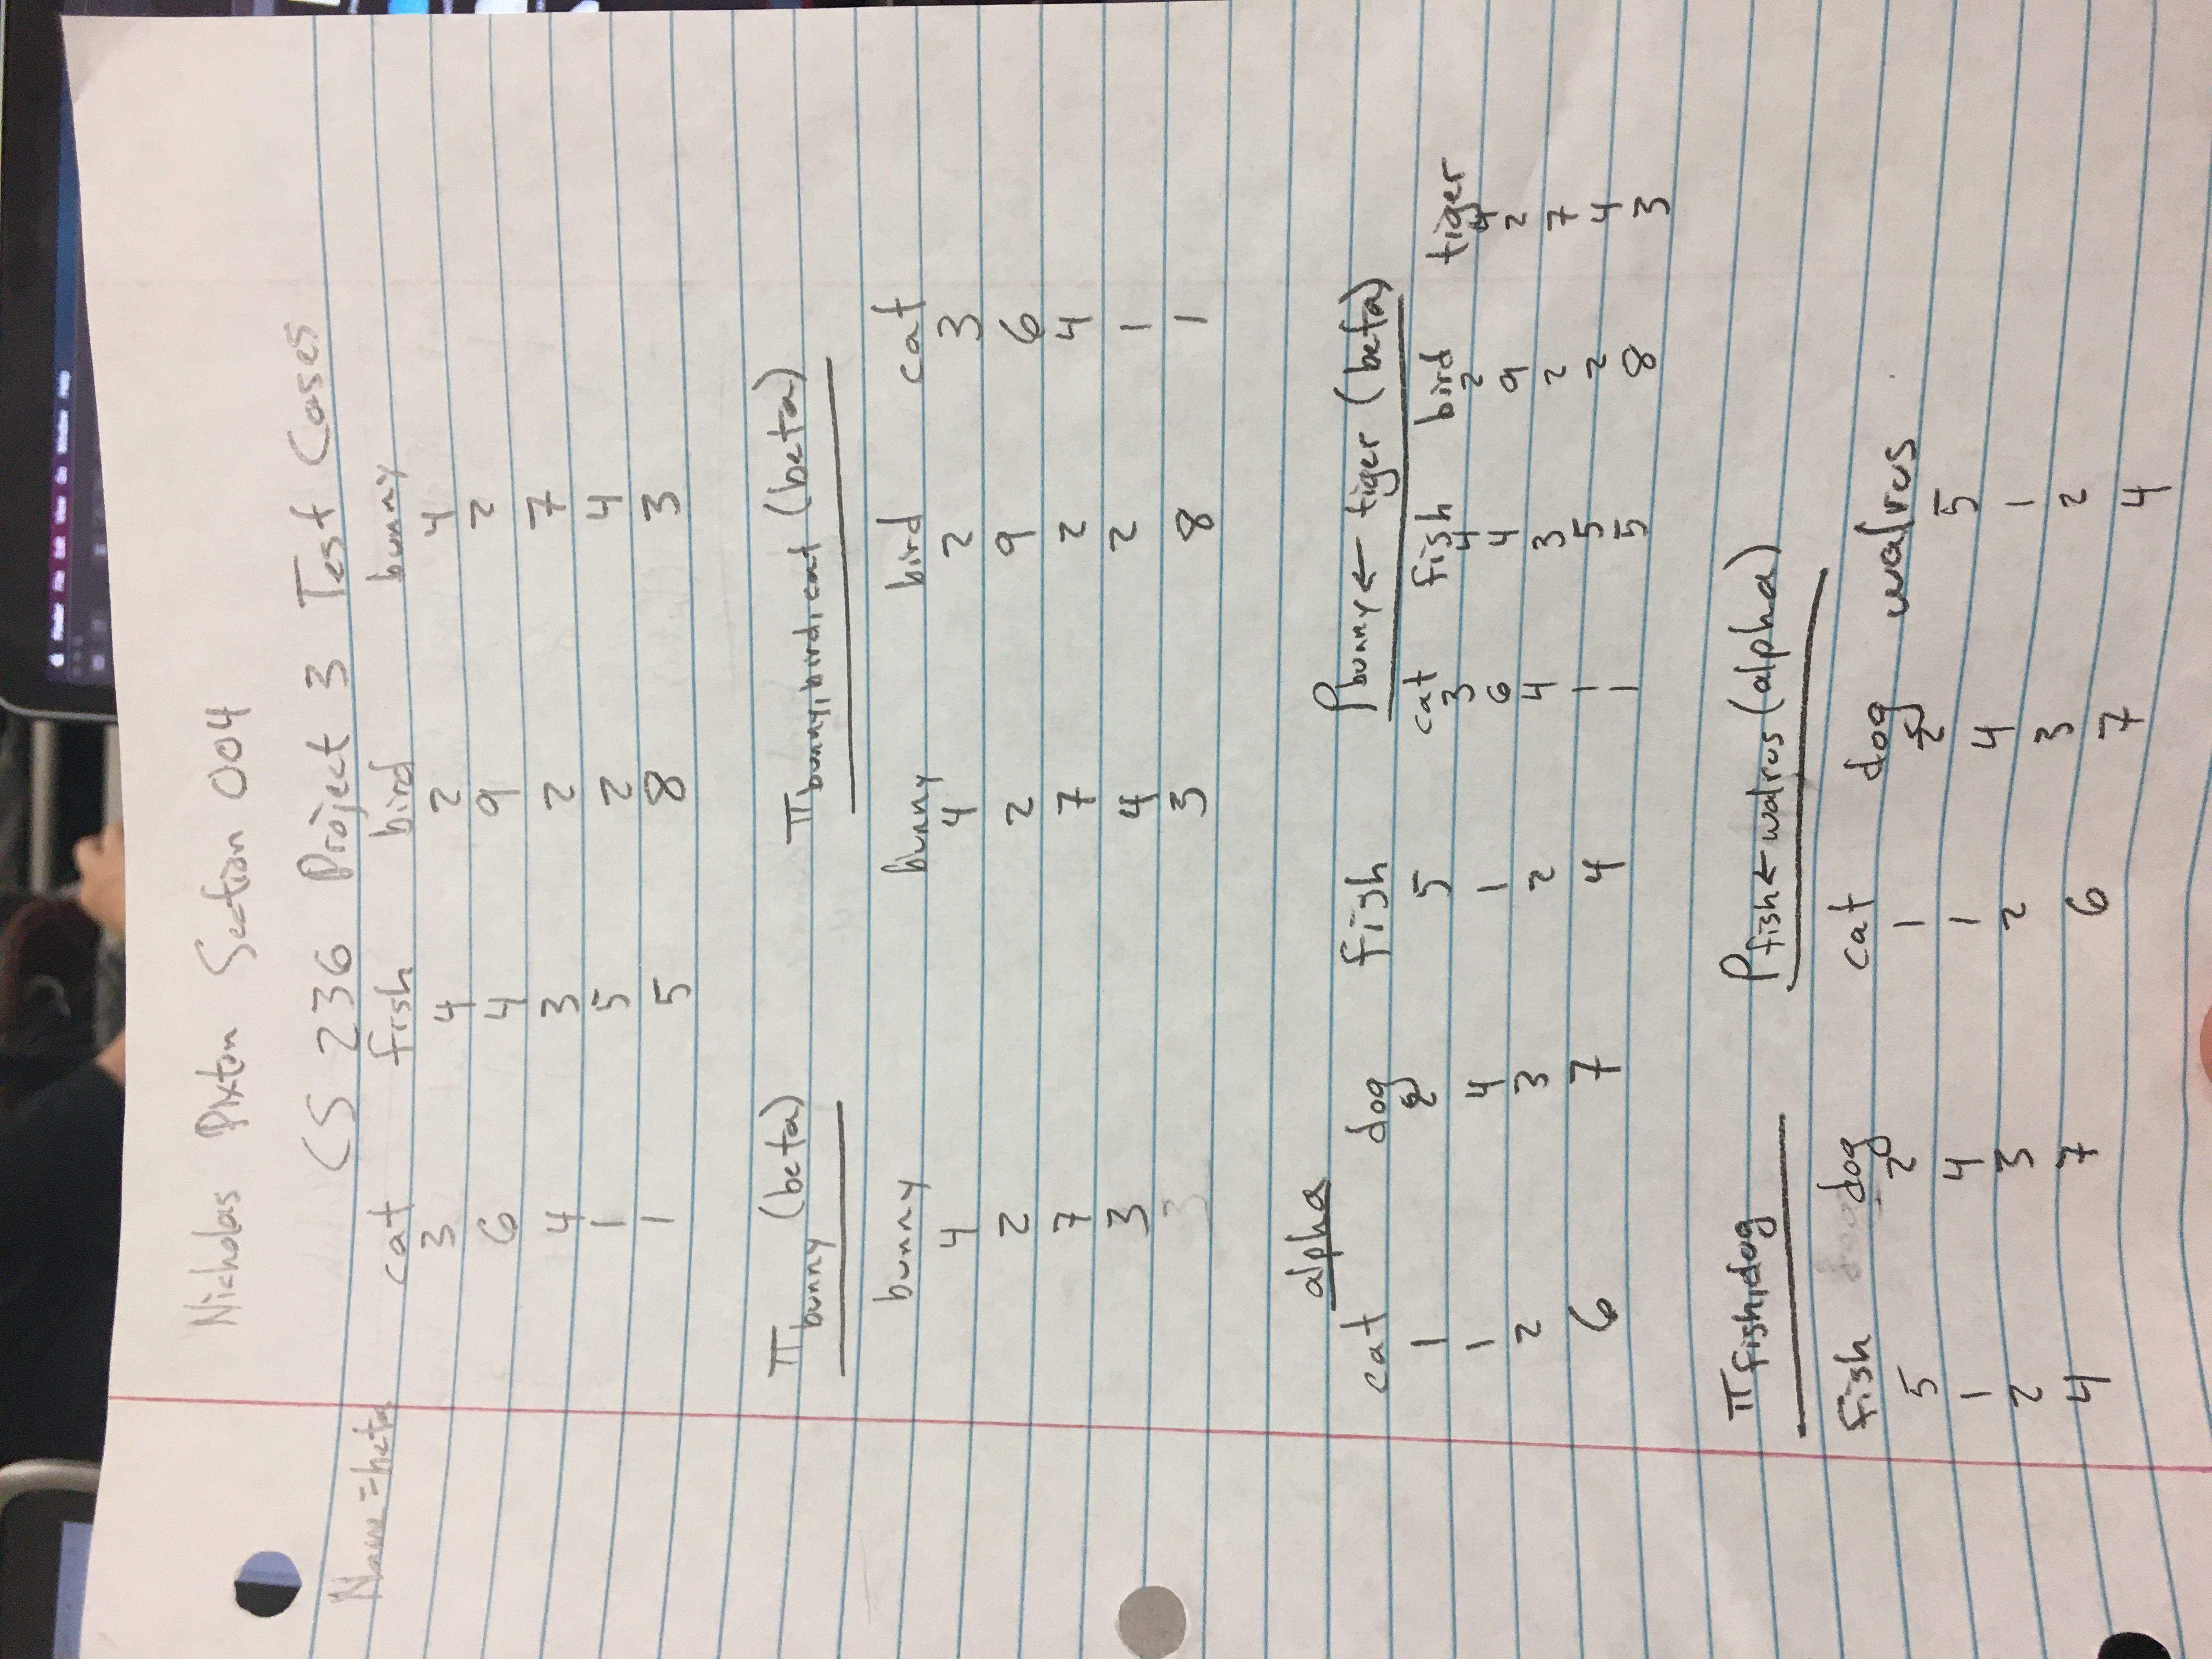 Finder File Edit View Go Window Help
Nicholas Pixton Section 004
CS 236 Project 3 Test Cases
Name = beta
cat fish bird bunny
3 4 2 4
6 4 9 2
4 3 2 7
1 5 2 4
1 5 8 3
π bunny (beta)
bunny
4
2
7
3
3
π bunny, bird, cat (beta)
bunny bird cat
4 2 3
2 9 6
7 2 4
4 2 1
3 8 1
alpha
cat dog fish
1 2 5
1 4 1
2 3 2
6 7 4
ρ bunny ← tiger (beta)
cat fish bird tiger
3 4 2 4
6 4 9 2
4 3 2 7
1 5 2 4
1 5 8 3
π fish, dog
fish dog
5 2
1 4
2 3
4 7
ρ fish ← walrus (alpha)
cat dog walrus
1 2 5
1 4 1
2 3 2
6 7 4